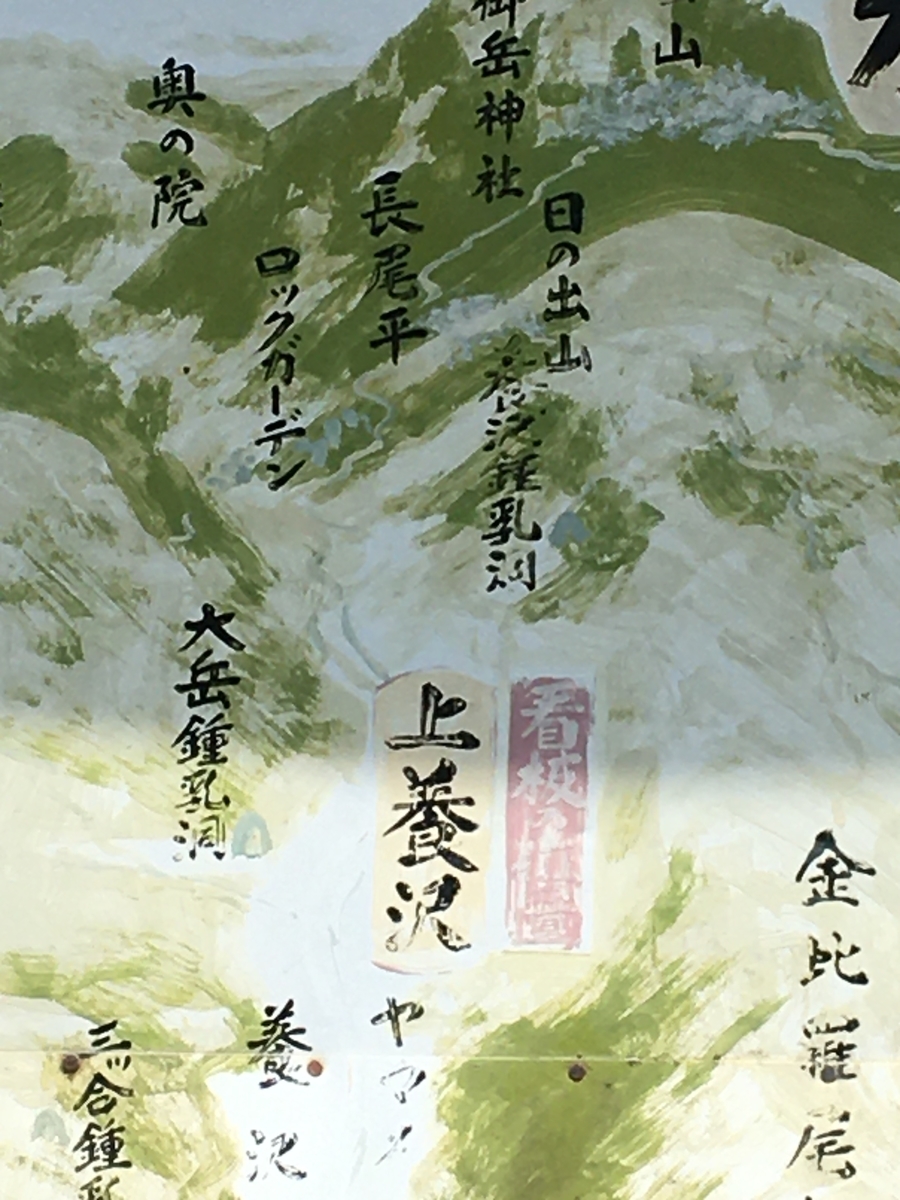 山
御岳神社
日の出山
養沢鍾乳洞
長尾平
ロックガーデン
奥の院
大岳鍾乳洞
上養沢
看板
金比羅尾
ヤマメ
養沢
三ツ合鍾乳